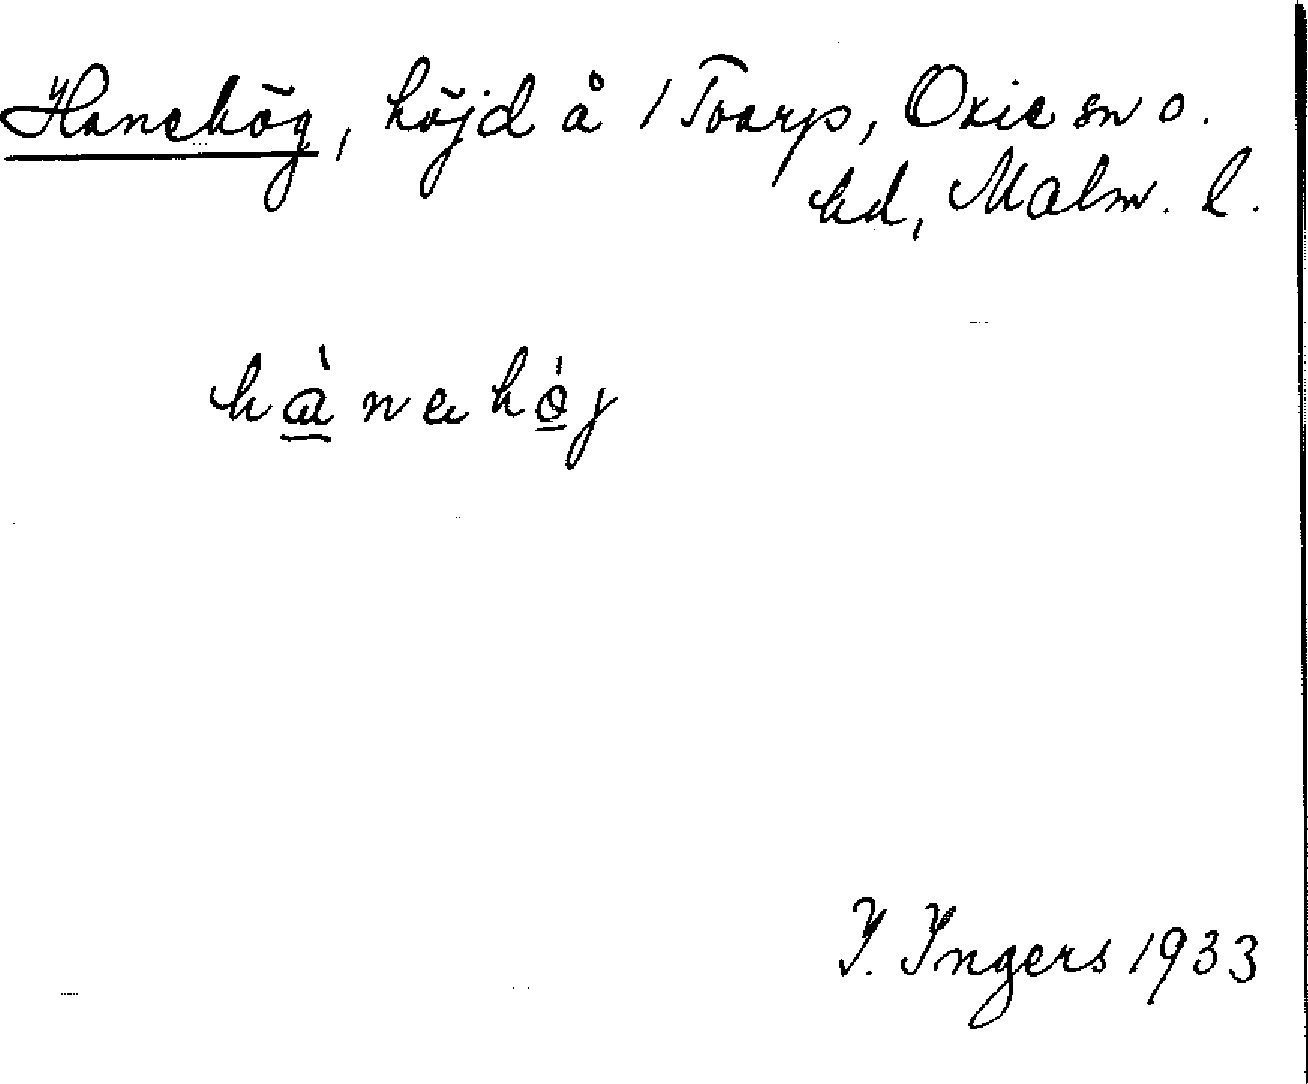 Hanehög, höjd å 1 Toarp, Oxie sn o.
hd, Malm. l.
hànahǿj
I. Ingers 1933